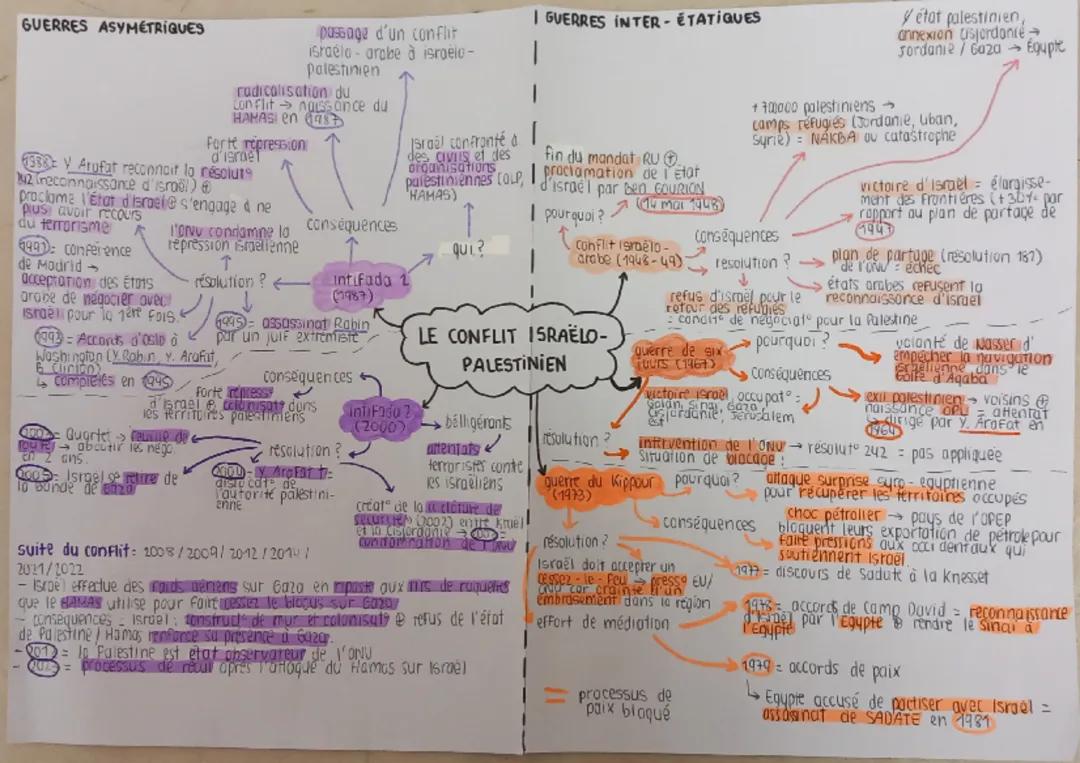 GUERRES ASYMÉTRIQUES
passage d'un conflit
israélo-arabe à israélo-
palestinien
radicalisation du
conflit → naissance du
HAMAS! en 1987
Forte répression
d'Israël
Israël confronté à
des civils et des
organisations
palestiniennes (OLP,
HAMAS)
1988 = Y. Arafat reconnait la résolut°
242 (reconnaissance d'Israël) ⊕
proclame l'État d'Israël ⊕ s'engage à ne
plus avoir recours
au terrorisme
l'ONU condamne la
répression israélienne
conséquences
qui ?
1991 = conférence
de Madrid →
acceptation des États
arabe de négocier avec
Israël pour la 1ère fois.
résolution ?
intifada 1
(1987)
1993 = Accords d'Oslo à
Washington (Y. Rabin, Y. Arafat,
B. Clinton)
↳ complétés en 1995
1995 = assassinat Rabin
par un juif extrémiste
LE CONFLIT ISRAËLO-
PALESTINIEN
conséquences
Forte répress°
d'Israël ⊕ colonisat° dans
les territoires palestiniens
intifada 2
(2000)
bélligérants
attentats
terroristes contre
les israéliens
résolution ?
= Quartet → feuille de
route → aboutir les négo.
en 2 ans.
2005 = Israël se retire de
la bande de Gaza
2004 = Y. Arafat †=
dislocat° de
l'autorité palestini-
enne
créat° de la clôture de
sécurité (2002) entre Israël
et la Cisjordanie →
condamnation de l'ONU
suite du conflit : 2008 / 2009 / 2012 / 2014 /
2021 / 2022
- Israël effectue des raids aériens sur Gaza en riposte aux tirs de roquettes
que le HAMAS utilise pour faire cessez le blocus sur Gaza
- conséquences = Israël : construct° de mur et colonisat° ⊕ refus de l'état
de Palestine / Hamas renforce sa présence à Gaza.
- 2012 = la Palestine est état observateur de l'ONU
- 2023 = processus de recul après l'attaque du Hamas sur Israël
GUERRES INTER-ÉTATIQUES
état palestinien,
annexion Cisjordanie →
Jordanie / Gaza → Égypte
+ 700000 palestiniens →
camps réfugiés (Jordanie, Liban,
Syrie) = NAKBA ou catastrophe
fin du mandat RU ⊕
proclamation de l'État
d'Israël par Ben GOURION
(14 mai 1948)
pourquoi ?
victoire d'Israël = élargisse-
ment des frontières (+30% par
rapport au plan de partage de
1947
conflit israélo-
arabe (1948-49)
conséquences
résolution ?
plan de partage (résolution 181)
de l'ONU = échec
états arabes refusent la
reconnaissance d'Israël
refus d'Israël pour le
retour des réfugiés
= condit° de négociat° pour la Palestine
guerre de six
jours (1967)
pourquoi ?
volonté de Nasser d'
empêcher la navigation
israélienne dans le
Golfe d'Aqaba
conséquences
victoire Israël, occupat° :
Golan, Sinaï, Gaza,
Cisjordanie, Jérusalem
est
exil palestinien → voisins ⊕
naissance OPL = attentat
dirigé par Y. Arafat en
1964
résolution ?
intervention de l'ONU → résolut° 242 = pas appliquée
situation de blocage !
guerre du Kippour
(1973)
pourquoi ?
attaque surprise syro-égyptienne
pour récupérer les territoires occupés
conséquences
choc pétrolier → pays de l'OPEP
bloquent leurs exportation de pétrole pour
faire pressions aux occidentaux qui
soutiennent Israël
résolution ?
Israël doit accepter un
cessez-le-feu → press° EU/
ONU car crainte d'un
embrasement dans la région
effort de médiation
1977 = discours de Sadate à la Knesset
1978 = accords de Camp David = reconnaissance
d'Israël par l'Egypte ⊕ rendre le Sinaï à
l'Egypte
1979 = accords de paix
↳ Egypte accusé de pactiser avec Israël =
assasinat de SADATE en 1981
= processus de
paix bloqué